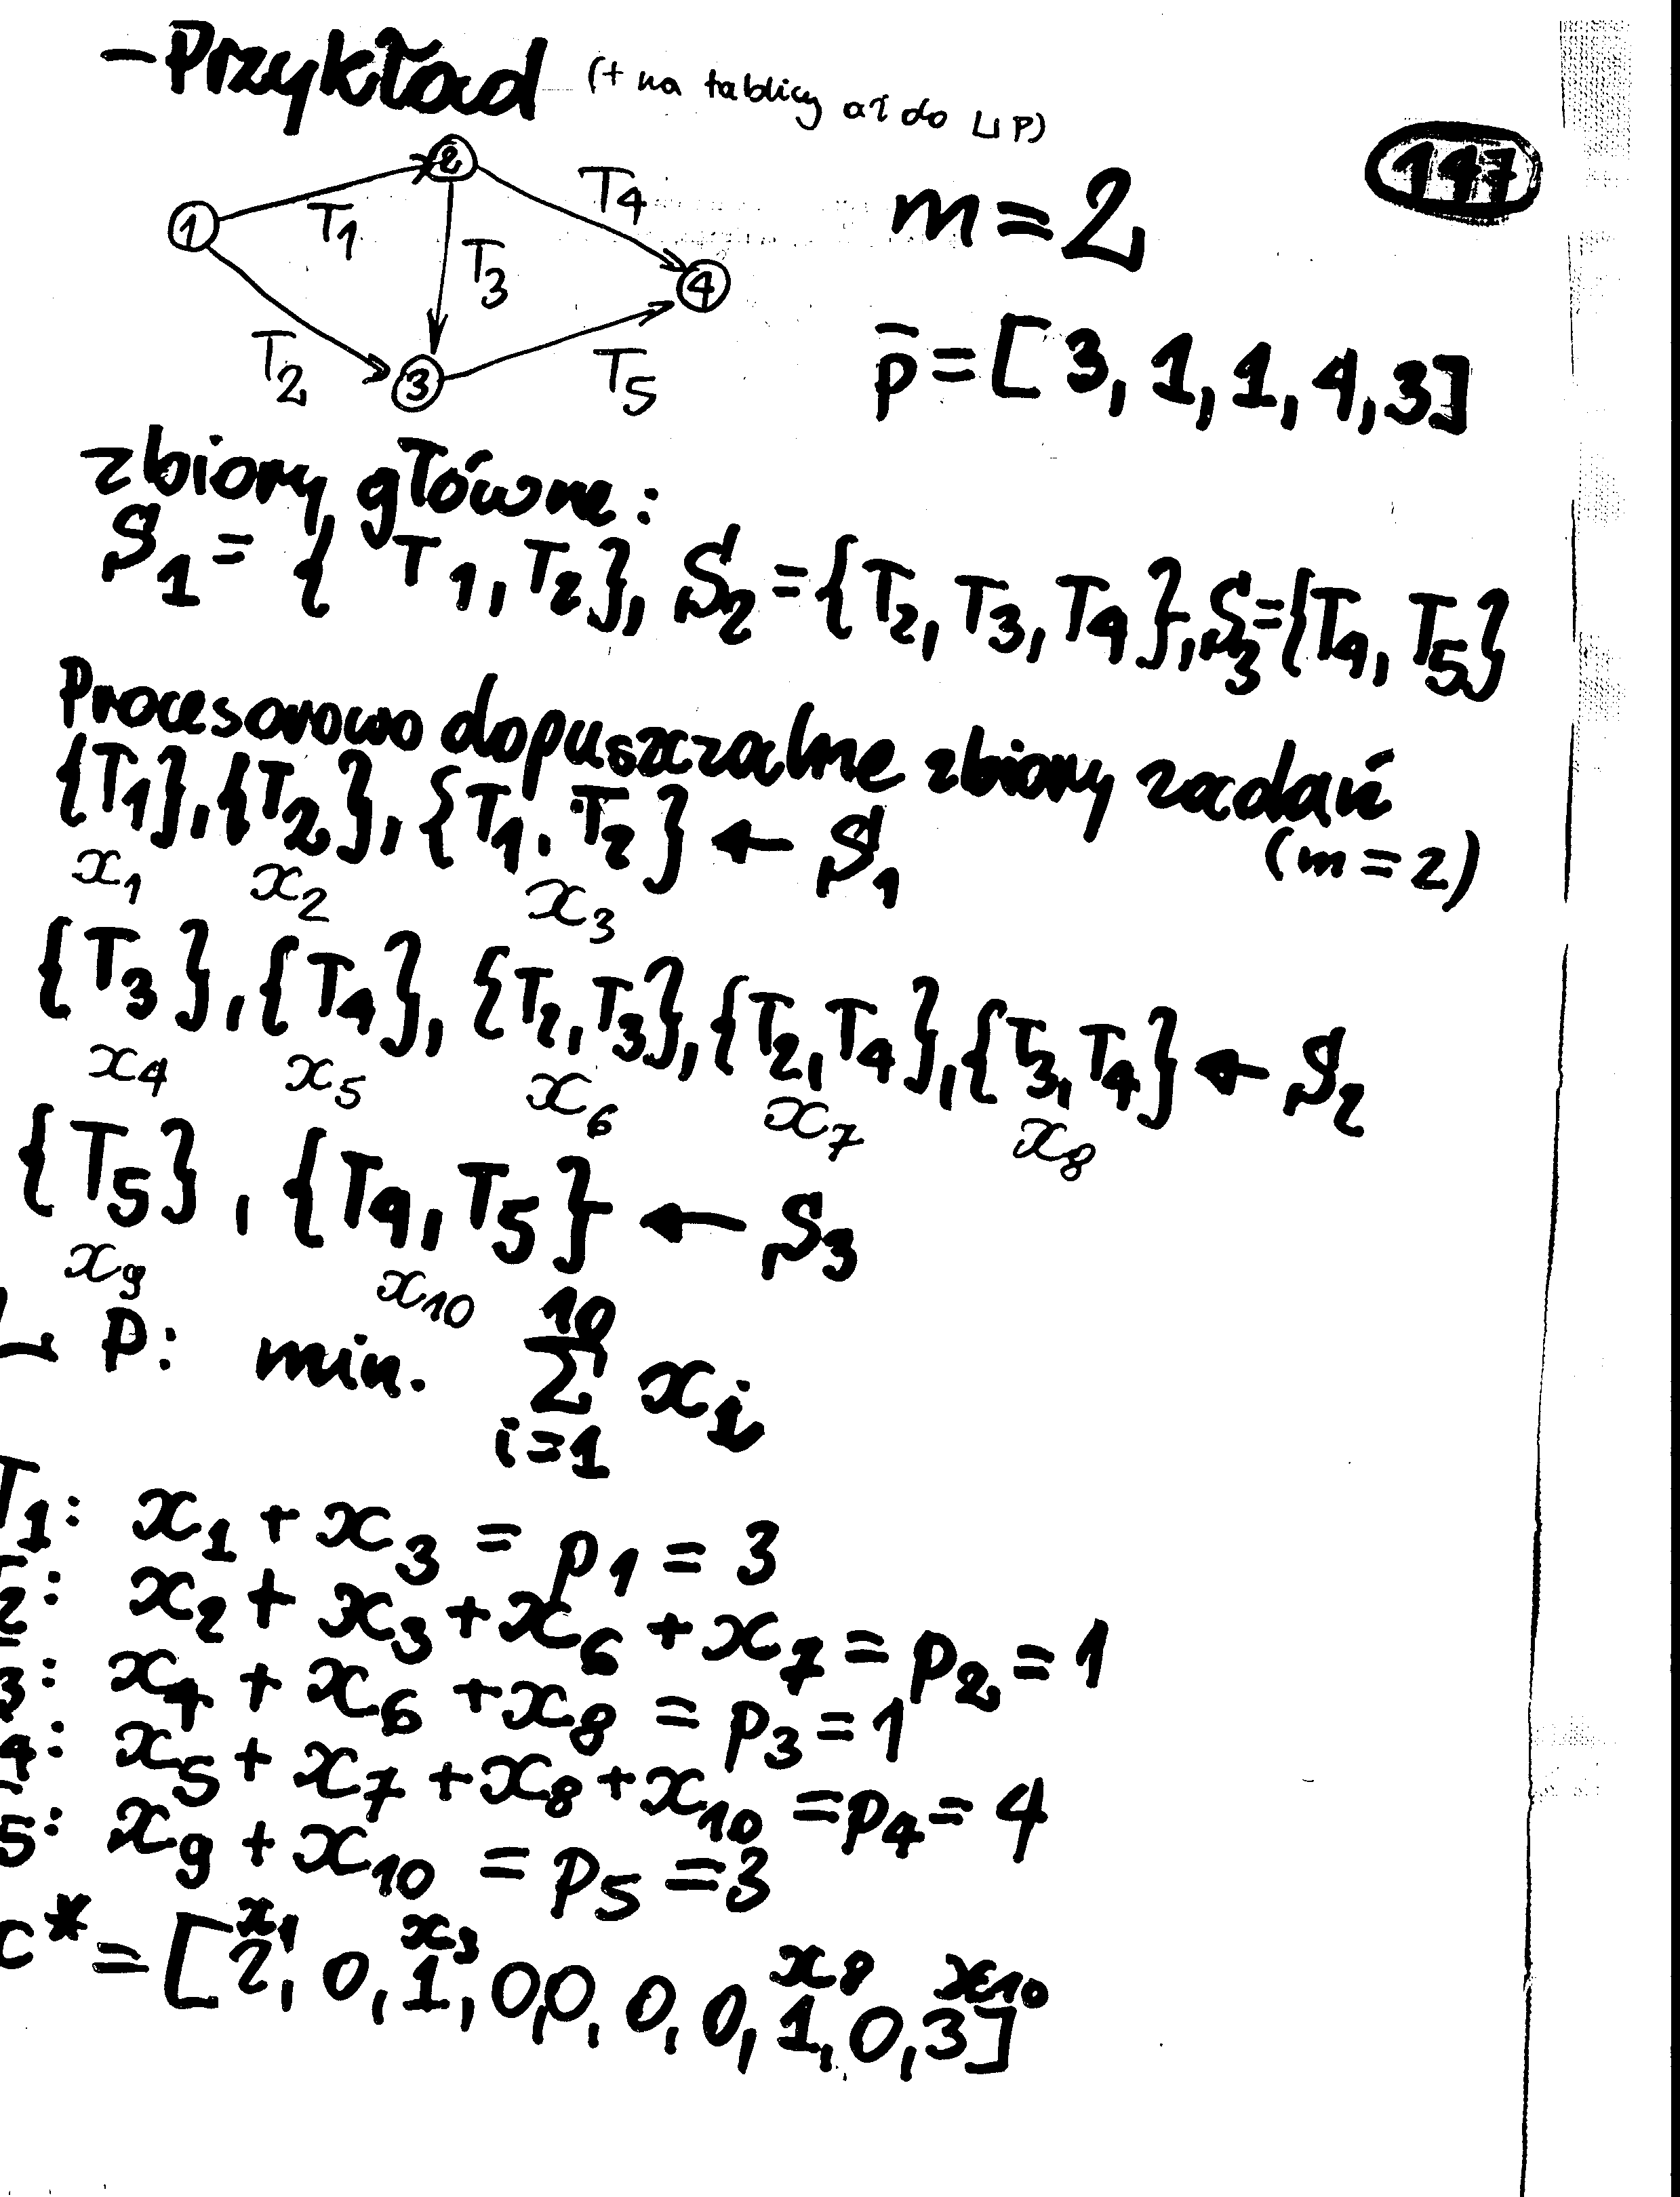 – Przykład (+ na tablicy aż do LP)
147
1 2 3 4
T1 T2 T3 T4 T5
m = 2
p̄ = [3, 1, 1, 4, 3]
zbiory główne:
S1 = { T1, T2}, S2 = {T2, T3, T4}, S3 = {T4, T5}
Procesorowo dopuszczalne zbiory zadań
(m = 2)
{T1}, {T2}, {T1, T2} ← S1
x1 x2 x3
{T3}, {T4}, {T2, T3}, {T2, T4}, {T3, T4} ← S2
x4 x5 x6 x7 x8
{T5}, {T4, T5} ← S3
x9 x10
L P: min. 10 Σ i=1 xi
T1: x1 + x3 = p1 = 3
2: x2 + x3 + x6 + x7 = p2 = 1
3: x4 + x6 + x8 = p3 = 1
4: x5 + x7 + x8 + x10 = p4 = 4
5: x9 + x10 = p5 = 3
x1 x3 x8 x10
* = [2, 0, 1, 0, 0, 0, 0, 1, 0, 3]